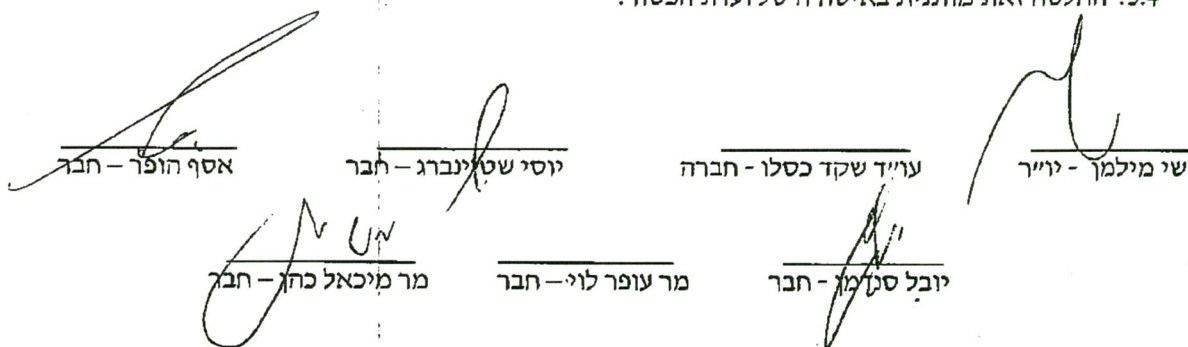 שי מילמן - יו״ר עו״ד שקד כסלו - חברה יוסי שטיינברג – חבר אסף הופר – חבר
יובל סנדמן - חבר מר עופר לוי – חבר מר מיכאל כהן – חבר